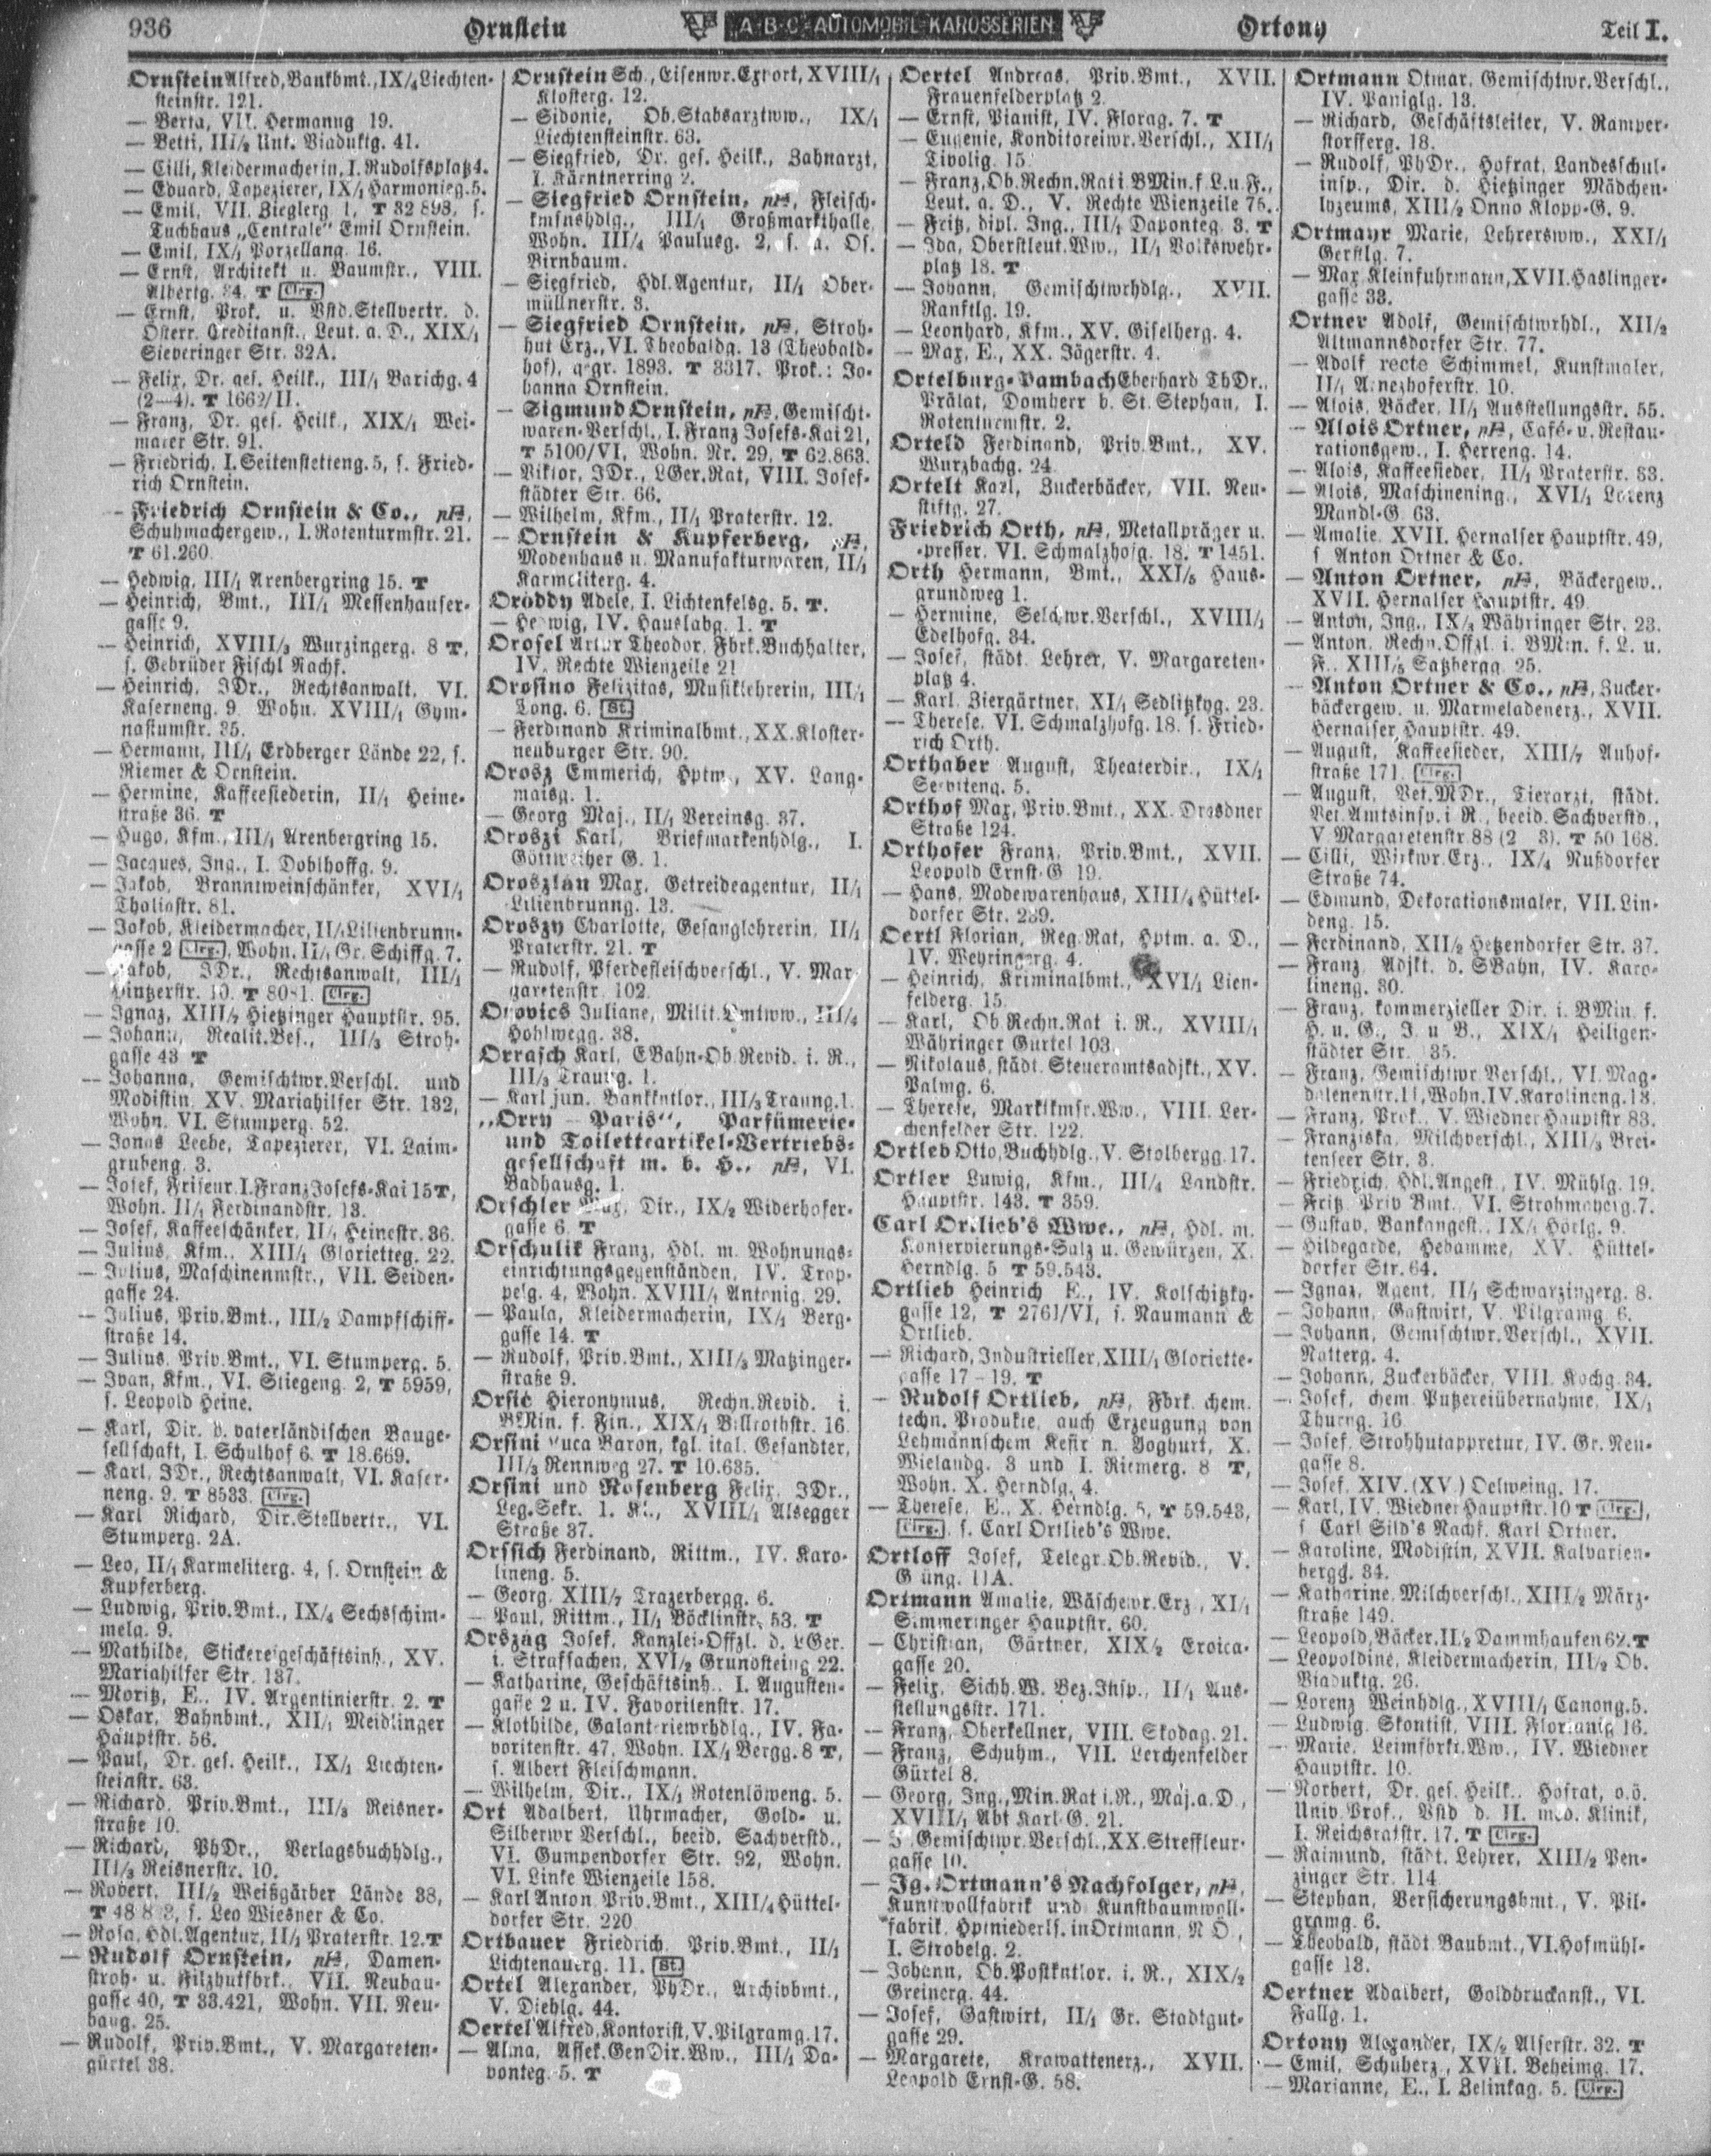 936 Ornstein A·B·C·AUTOMOBIL-KAROSSERIEN Ortony Teil I.
Ornstein Alfred, Bankbmt., IX/4 Liechten-
steinstr. 121.
— Berta, VII. Hermanng 19.
— Betti, III/2 Unt. Viaduktg. 41.
— Cilli, Kleidermacherin, I. Rudolfsplatz 4.
— Eduard, Tapezierer, IX/1 Harmonieg. 5.
— Emil, VII. Zieglerg 1, T 32 893, s.
Tuchhaus „Centrale" Emil Ornstein.
— Emil, IX/1 Porzellang. 16.
— Ernst, Architekt u. Baumstr., VIII.
Albertg. 34. T Clrg.
— Ernst, Prok. u. Vstd.Stellvertr. d.
Österr. Creditanst., Leut. a. D., XIX/1
Sieveringer Str. 32A.
— Felix, Dr. ges. Heilk., III/1 Barichg. 4
(2—4). T 1662/II.
— Franz, Dr. ges. Heilk., XIX/1 Wei-
marer Str. 91.
— Friedrich, I. Seitenstetteng. 5, s. Fried-
rich Ornstein.
— Friedrich Ornstein & Co., pH,
Schuhmachergew., I. Rotenturmstr. 21.
T 61.260.
— Hedwig, III/1 Arenbergring 15. T
— Heinrich, Bmt., III/1 Messenhauser-
gasse 9.
— Heinrich, XVIII/3 Wurzingerg. 8 T,
s. Gebrüder Fischl Nachf.
— Heinrich, JDr., Rechtsanwalt, VI.
Kaserneng. 9 Wohn. XVIII/1 Gym-
nasiumstr. 35.
— Hermann, III/1 Erdberger Lände 22, s.
Riemer & Ornstein.
— Hermine, Kaffeesiederin, II/1 Heine-
straße 36. T
— Hugo, Kfm., III/1 Arenbergring 15.
— Jacques, Ing., I. Doblhoffg. 9.
— Jakob, Branntweinschänker, XVI/1
Thaliastr. 81.
— Jakob, Kleidermacher, II/1 Lilienbrunn-
gasse 2 Clrg., Wohn. II/1 Gr. Schiffg. 7.
— Jakob, JDr., Rechtsanwalt, III/1
Hintzerstr. 10. T 8081. Clrg.
— Ignaz, XIII/7 Hietzinger Hauptstr. 95.
— Johann, Realit.Bes., III/3 Stroh-
gasse 43 T
— Johanna, Gemischtwr.Verschl. und
Modistin, XV. Mariahilfer Str. 132,
Wohn. VI. Stumperg. 52.
— Jonas Leebe, Tapezierer, VI. Laim-
grubeng. 3.
— Josef, Friseur, I. Franz Josefs-Kai 15 T,
Wohn. II/1 Ferdinandstr. 13.
— Josef, Kaffeeschänker, II/1 Heinestr. 36.
— Julius, Kfm., XIII/1 Glorietteg. 22.
— Julius, Maschinenmstr., VII. Seiden-
gasse 24.
— Julius, Priv.Bmt., III/2 Dampfschiff-
straße 14.
— Julius, Priv.Bmt., VI. Stumperg. 5.
— Ivan, Kfm., VI. Stiegeng. 2, T 5959,
s. Leopold Heine.
— Karl, Dir. d. vaterländischen Bauge-
sellschaft, I. Schulhof 6. T 18.669.
— Karl, JDr., Rechtsanwalt, VI. Kaser-
neng. 9. T 8533. Clrg.
— Karl Richard, Dir.Stellvertr., VI.
Stumperg. 2A.
— Leo, II/1 Karmeliterg. 4, s. Ornstein &
Kupferberg.
— Ludwig, Priv.Bmt., IX/4 Sechsschim-
melg. 9.
— Mathilde, Stickereigeschäftsinh., XV.
Mariahilfer Str. 137.
— Moritz, E., IV. Argentinierstr. 2. T
— Oskar, Bahnbmt., XII/1 Meidlinger
Hauptstr. 56.
— Paul, Dr. ges. Heilk., IX/1 Liechten-
steinstr. 63.
— Richard, Priv.Bmt., III/3 Reisner-
straße 10.
— Richard, PhDr., Verlagsbuchhdlg.,
III/3 Reisnerstr. 10.
— Robert, III/2 Weißgärber Lände 38,
s. Leo Wiesner & Co.
— Rosa, Hdl.Agentur, II/1 Praterstr. 12. T
— Rudolf Ornstein, pH, Damen-
stroh- u. Filzhutfbrk., VII. Neubau-
gasse 40, T 33.421, Wohn. VII. Neu-
baug. 25.
— Rudolf, Priv.Bmt., V. Margareten-
gürtel 38.
Ornstein Sch., Eisenwr.Export, XVIII/1
Klosterg. 12.
— Sidonie, Ob.Stabsarztww., IX/1
Liechtensteinstr. 63.
— Siegfried, Dr. ges. Heilk., Zahnarzt,
I. Kärntnerring 2.
— Siegfried Ornstein, pH, Fleisch-
kmsnshdlg., III/1 Großmarkthalle,
Wohn. III/4 Paulusg. 2, s. a. Os.
Birnbaum.
— Siegfried, Hdl.Agentur, II/1 Ober-
müllnerstr. 3.
— Siegfried Ornstein, pH, Stroh-
hut Erz., VI. Theobaldg. 13 (Theobald-
hof), gegr. 1893. T 3317. Prok.: Jo-
hanna Ornstein.
— Sigmund Ornstein, pH, Gemischt-
waren-Verschl., I. Franz Josefs-Kai 21,
T 5100/VI, Wohn. Nr. 29, T 62.863.
— Viktor, JDr., LGer.Rat, VIII. Josef-
städter Str. 66.
— Wilhelm, Kfm., II/1 Praterstr. 12.
— Ornstein & Kupferberg, pH,
Modenhaus u. Manufakturwaren, II/1
Karmeliterg. 4.
Oroddy Adele, I. Lichtenfelsg. 5. T.
— Hedwig, IV. Hauslabg. 1. T
Orosel Artur Theodor, Fbrk.Buchhalter,
IV. Rechte Wienzeile 21
Orosino Felizitas, Musiklehrerin, III/1
Tong. 6. St.
— Ferdinand Kriminalbmt., XX. Kloster-
neuburger Str. 90.
Orosz Emmerich, Hptm., XV. Lang-
maisg. 1.
— Georg Maj., II/1 Vereinsg. 37.
Oroszi Karl, Briefmarkenhdlg., I.
Göttweiher G. 1.
Oroszlán Max, Getreideagentur, II/1
Lilienbrunng. 13.
Oroszy Charlotte, Gesanglehrerin, II/1
Praterstr. 21. T
— Rudolf, Pferdefleischverschl., V. Mar-
garetenstr 102.
Orovics Juliane, Milit.Bmtww., III/4
Hohlwegg. 38.
Orrasch Karl, EBahn-Ob.Revid. i. R.,
III/3 Traung. 1.
— Karl jun. Bankkntlor., III/3 Traung. 1.
„Orry — Paris", Parfümerie-
und Toiletteartikel-Vertriebs-
gesellschaft m. b. H., pH, VI.
Badhausg. 1.
Orschler Max, Dir., IX/2 Widerhofer-
gasse 6. T
Orschulik Franz, Hdl. m. Wohnungs-
einrichtungsgegenständen, IV. Trap-
pelg. 4, Wohn. XVIII/1 Antonig. 29.
— Paula, Kleidermacherin, IX/1 Berg-
gasse 14. T
— Rudolf, Priv.Bmt., XIII/3 Matzinger-
straße 9.
Orsić Hieronymus, Rechn.Revid. i.
BMin. f. Fin., XIX/1 Billrothstr. 16.
Orsini Luca Baron, kgl. ital. Gesandter,
III/3 Rennweg 27. T 10.635.
Orsini und Rosenberg Felix, JDr.,
Leg.Sekr. 1. Kl., XVIII/1 Alsegger
Straße 37.
Orssich Ferdinand, Rittm., IV. Karo-
lineng. 5.
— Georg, XIII/7 Trazerbergg. 6.
— Paul, Rittm., II/1 Böcklinstr. 53. T
Ország Josef, Kanzlei-Offzl. d. LGer.
i. Strafsachen, XVI/2 Grundsteing 22.
— Katharine, Geschäftsinh., I. Augusten-
gasse 2 u. IV. Favoritenstr. 17.
— Klothilde, Galanteriewrhdlg., IV. Fa-
voritenstr. 47, Wohn. IX/1 Bergg. 8 T,
s. Albert Fleischmann.
— Wilhelm, Dir., IX/1 Rotenlöweng. 5.
Ort Adalbert, Uhrmacher, Gold- u.
Silberwr Verschl., beeid. Sachverstd.,
VI. Gumpendorfer Str. 92, Wohn.
VI. Linke Wienzeile 158.
— Karl Anton Priv.Bmt., XIII/4 Hüttel-
dorfer Str. 220
Ortbauer Friedrich, Priv.Bmt., II/1
Lichtenauerg. 11. St.
Ortel Alexander, PhDr., Archivbmt.,
V. Diehlg. 44.
Oertel Alfred, Kontorist, V. Pilgramg. 17.
— Alma, Assek.GenDir.Ww., III/1 Da-
ponteg. 5. T
Oertel Andreas, Priv.Bmt., XVII.
Frauenfelderplatz 2.
— Ernst, Pianist, IV. Florag. 7. T
— Eugenie, Konditoreiwr.Verschl., XII/1
Tivolig. 15.
— Franz, Ob.Rechn.Rat i. BMin.f.L.u.F.,
Leut. a. D., V. Rechte Wienzeile 75.
— Fritz, dipl. Ing., III/1 Daponteg. 3. T
— Ida, Oberstleut.Ww., II/1 Volkswehr-
platz 18. T
— Johann, Gemischtwrhdlg., XVII.
Ranftlg. 19.
— Leonhard, Kfm., XV. Giselherg. 4.
— Max, E., XX. Jägerstr. 4.
Ortelburg-Bambach Eberhard ThDr.,
Prälat, Domherr b. St. Stephan, I.
Rotenturmstr. 2.
Orteld Ferdinand, Priv.Bmt., XV.
Wurzbachg. 24
Ortelt Karl, Zuckerbäcker, VII. Neu-
stiftg. 27.
Friedrich Orth, pH, Metallpräger u.
-presser, VI. Schmalzhofg. 18. T 1451.
Orth Hermann, Bmt., XXI/5 Haus-
grundweg 1.
— Hermine, Selchwr.Verschl., XVIII/1
Edelhofg. 34.
— Josef, städt. Lehrer, V. Margareten-
platz 4.
— Karl, Ziergärtner, XI/1 Sedlitzkyg. 23.
— Therese, VI. Schmalzhofg. 18. s. Fried-
rich Orth.
Orthaber August, Theaterdir., IX/1
Serviteng. 5.
Orthof Max, Priv.Bmt., XX. Dresdner
Straße 124.
Orthofer Franz, Priv.Bmt., XVII.
Leopold Ernst-G 19.
— Hans, Modewarenhaus, XIII/4 Hüttel-
dorfer Str. 239.
Oertl Florian, Reg.Rat, Hptm. a. D.,
IV. Weyringerg. 4.
— Heinrich, Kriminalbmt., XVI/1 Lien-
felderg. 15.
— Karl, Ob.Rechn.Rat i. R., XVIII/1
Währinger Gürtel 103.
— Nikolaus, städt. Steueramtsadjkt., XV.
Palmg. 6.
— Therese, Marktkmsr.Ww., VIII. Ler-
chenfelder Str. 122.
Ortleb Otto, Buchhdlg., V. Stolbergg. 17.
Ortler Luwig, Kfm., III/4 Landstr.
Hauptstr. 143. T 359.
Carl Ortlieb's Wwe., pH, Hdl. m.
Konservierungs-Salz u. Gewürzen, X.
Herndlg. 5 T 59.543.
Ortlieb Heinrich E., IV. Kolschitzky-
gasse 12, T 2761/VI, s. Naumann &
Ortlieb.
— Richard, Industrieller, XIII/1 Gloriette-
gasse 17—19. T
— Rudolf Ortlieb, pH, Fbrk. chem.
techn. Produkte, auch Erzeugung von
Lehmannschem Kefir n. Joghurt, X.
Wielandg. 3 und I. Riemerg. 8 T,
Wohn. X. Herndlg. 4.
— Therese, E., X. Herndlg. 5, T 59.543,
Clrg., s. Carl Ortlieb's Wwe.
Ortloff Josef, Telegr.Ob.Revid., V.
Grüng. 11A.
Ortmann Amalie, Wäschewr.Erz., XI/1
Simmeringer Hauptstr. 60.
— Christian, Gärtner, XIX/2 Eroica-
gasse 20.
— Felix, Sichh.W. Bez.Insp., II/1 Aus-
stellungsstr. 171.
— Franz, Oberkellner, VIII. Skodag. 21.
— Franz, Schuhm., VII. Lerchenfelder
Gürtel 8.
— Georg, Ing., Min.Rat i. R., Maj. a. D.,
XVIII/1 Abt Karl-G. 21.
— Gemischtwr.Verschl., XX. Streffleur-
gasse 10.
— Ig. Ortmann's Nachfolger, pH,
Kunstwollfabrik und Kunstbaumwoll-
fabrik, Hptniederls. in Ortmann, N.Ö.,
I. Strobelg. 2.
— Johann, Ob.Postkntlor. i. R., XIX/2
Greinerg. 44.
— Josef, Gastwirt, II/1 Gr. Stadtgut-
gasse 29.
— Margarete, Krawattenerz., XVII.
Leopold Ernst-G. 58.
Ortmann Otmar, Gemischtwr.Verschl.,
IV. Paniglg. 13.
— Richard, Geschäftsleiter, V. Ramper-
storfferg. 18.
— Rudolf, PhDr., Hofrat, Landesschul-
insp., Dir. d. Hietzinger Mädchen-
lyzeums, XIII/2 Onno Klopp-G. 9.
Ortmayr Marie, Lehrersww., XXI/1
Gerstlg. 7.
— Max, Kleinfuhrmann, XVII. Haslinger-
gasse 33.
Ortner Adolf, Gemischtwrhdl., XII/2
Altmannsdorfer Str. 77.
— Adolf recte Schimmel, Kunstmaler,
II/1 Arnezhoferstr. 10.
— Alois, Bäcker, II/1 Ausstellungsstr. 55.
— Alois Ortner, pH, Café- u. Restau-
rationsgew., I. Herreng. 14.
— Alois, Kaffeesieder, II/1 Praterstr. 33.
— Alois, Maschinening., XVI/1 Lorenz
Mandl-G. 63.
— Amalie, XVII. Hernalser Hauptstr. 49,
s. Anton Ortner & Co.
— Anton Ortner, pH, Bäckergew.,
XVII. Hernalser Hauptstr. 49
— Anton, Ing., IX/3 Währinger Str. 23.
— Anton, Rechn.Offzl. i. BMin. f. L. u.
F., XIII/5 Satzbergg. 25.
— Anton Ortner & Co., pH, Zucker-
bäckergew. u. Marmeladenerz., XVII.
Hernalser Hauptstr. 49.
— August, Kaffeesieder, XIII/7 Auhof-
straße 171. Clrg.
— August, Vet.MDr., Tierarzt, städt.
Vet.Amtsinsp. i. R., beeid. Sachverstd.,
V. Margaretenstr. 88 (2—3). T 50 168.
— Cilli, Wirkwr.Erz., IX/4 Nußdorfer
Straße 74.
— Edmund, Dekorationsmaler, VII. Lin-
deng. 15.
— Ferdinand, XII/2 Hetzendorfer Str. 37.
— Franz, Adjkt. d. SBahn, IV. Karo-
lineng. 30.
— Franz, kommerzieller Dir. i. BMin. f.
H. u. G., J. u B., XIX/1 Heiligen-
städter Str. 35.
— Franz, Gemischtwr.Verschl., VI. Mag-
dalenenstr. 11, Wohn. IV. Karolineng. 18.
— Franz, Prok., V. Wiedner Hauptstr 83.
— Franziska, Milchverschl., XIII/3 Brei-
tenseer Str. 3.
— Friedrich, Hdl.Angest., IV. Mühlg. 19.
— Fritz, Priv.Bmt., VI. Strohmayerg. 7.
— Gustav, Bankangest., IX/1 Hörlg. 9.
— Hildegarde, Hebamme, XV. Hüttel-
dorfer Str. 64.
— Ignaz, Agent, II/1 Schwarzingerg. 8.
— Johann, Gastwirt, V. Pilgramg. 6.
— Johann, Gemischtwr.Verschl., XVII.
Natterg. 4.
— Johann, Zuckerbäcker, VIII. Kochg. 34.
— Josef, chem. Putzereiübernahme, IX/1
Thurng. 16
— Josef, Strohhutappretur, IV. Gr. Neu-
gasse 8.
— Josef, XIV. (XV.) Oelweing. 17.
— Karl, IV. Wiedner Hauptstr. 10 T Clrg.,
s. Carl Sild's Nachf. Karl Ortner.
— Karoline, Modistin, XVII. Kalvarien-
bergg. 34.
— Katharine, Milchverschl., XIII/2 März-
straße 149.
— Leopold, Bäcker, II/2 Dammhaufen 62. T
— Leopoldine, Kleidermacherin, III/2 Ob.
Viaduktg. 26.
— Lorenz Weinhdlg., XVIII/1 Canong. 5.
— Ludwig, Skontist, VIII. Florianig 16.
— Marie, Leimfbrkt.Ww., IV. Wiedner
Hauptstr. 10.
— Norbert, Dr. ges. Heilk., Hofrat, o.ö.
Univ.Prof., Vstd d. II. med. Klinik,
I. Reichsratsstr. 17. T Clrg.
— Raimund, städt. Lehrer, XIII/2 Pen-
zinger Str. 114
— Stephan, Versicherungsbmt., V. Pil-
gramg. 6.
— Theobald, städt. Baubmt., VI. Hofmühl-
gasse 13.
Oertner Adalbert, Golddruckanst., VI.
Fallg. 1.
Ortony Alexander, IX/2 Alserstr. 32. T
— Emil, Schuherz., XVII. Beheimg. 17.
— Marianne, E., I. Zelinkag. 5. Clrg.